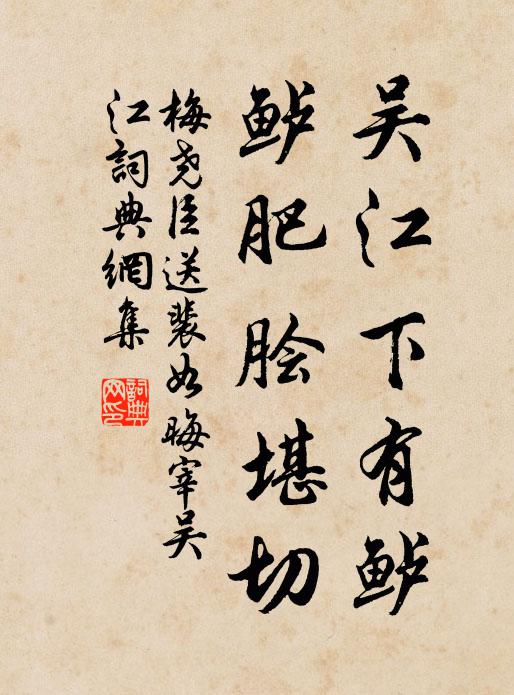 吴江下有鲈
鲈肥脍堪切
梅尧臣送裴如晦宰吴
江詞典網集
詞典网印